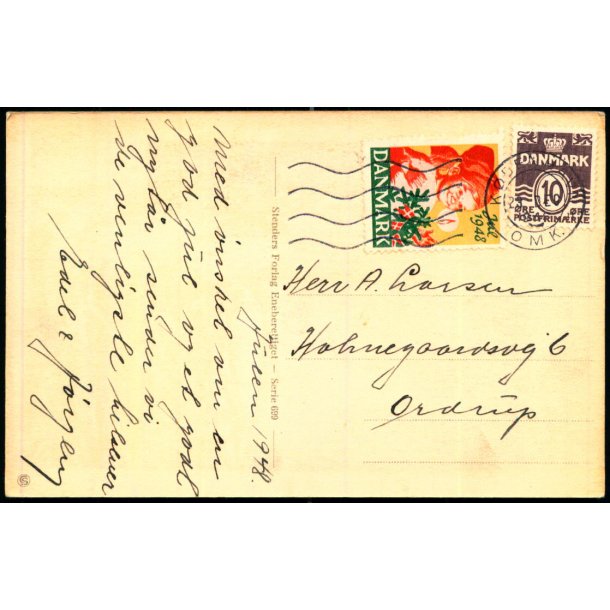 Julen 1948.
Med ønsket om en
god jul og et godt
nytår sender vi
de venligste hilsner
Edel & Jörgen
Stenders Forlag Eneberettiget — Serie 699
DANMARK
Jul
1948
DANMARK
10
ØRE ØRE
POSTFRIMÆRKE
KØB
OMK.
Herr A. Larsen
Holmegaardsvej 6
Ordrup